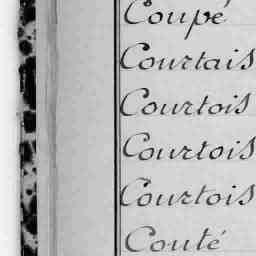 Coupé
Courtais
Courtois
Courtois
Courtois
Couté